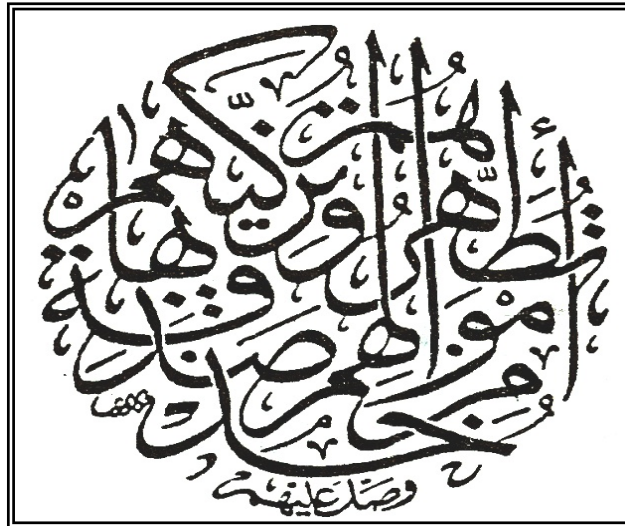 خذ من أموالهم صدقة
تطهرهم وتزكيهم بها
وصل عليهم